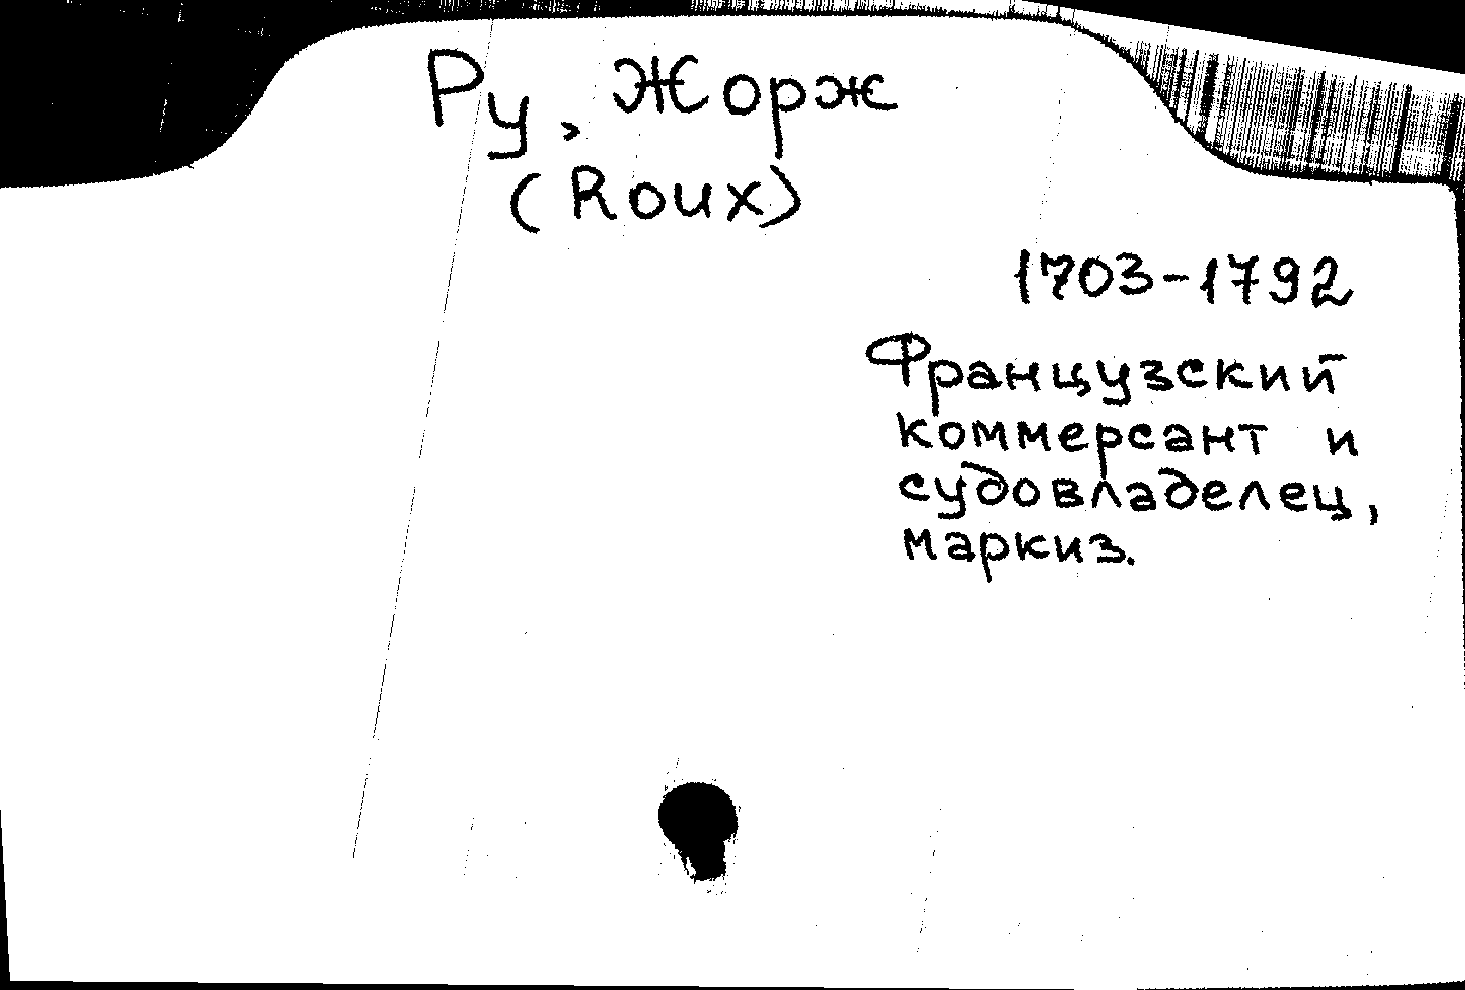 Ру, Жорж
(Roux)
1703-1792
Французский
коммерсант и
судовладелец,
маркиз.